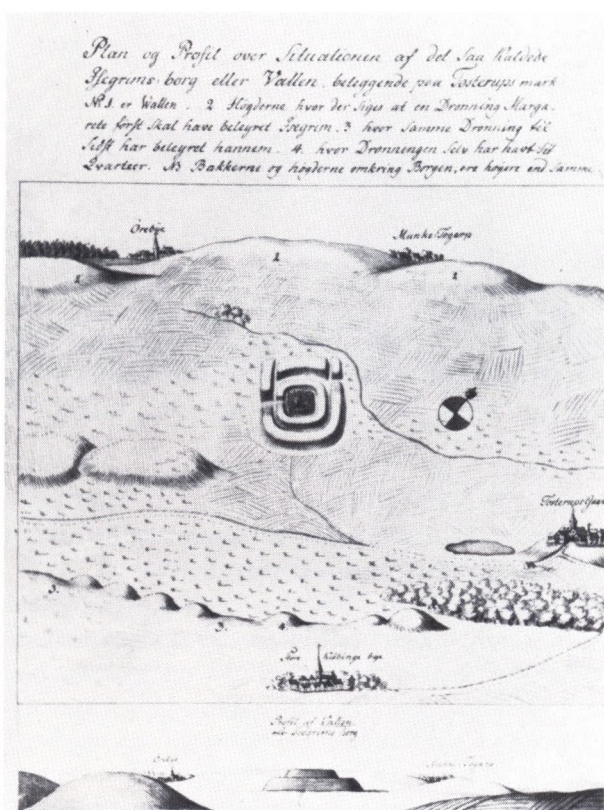 Plan og Profil over Situationen af det Saa Kaldede
Isegrims borg eller Vallen, beleggende paa Tosterups mark
N.1. er Wallen. 2 Högderne hvor der Siges at en Dronning Marga-
rete först Skal have beleyret Isegrim. 3 hvor Samme Dronning
Sidst har beleyret hannem. 4. hvor Dronningen Selv har havt Sit
Qvarteer. NB Bakkerne og högderne omkring Borgen, ere högere end Samme.
Örebye
Munke Togarp
2
1
3.
3.
4.
Kiöbinge bye
Profil af Vallen